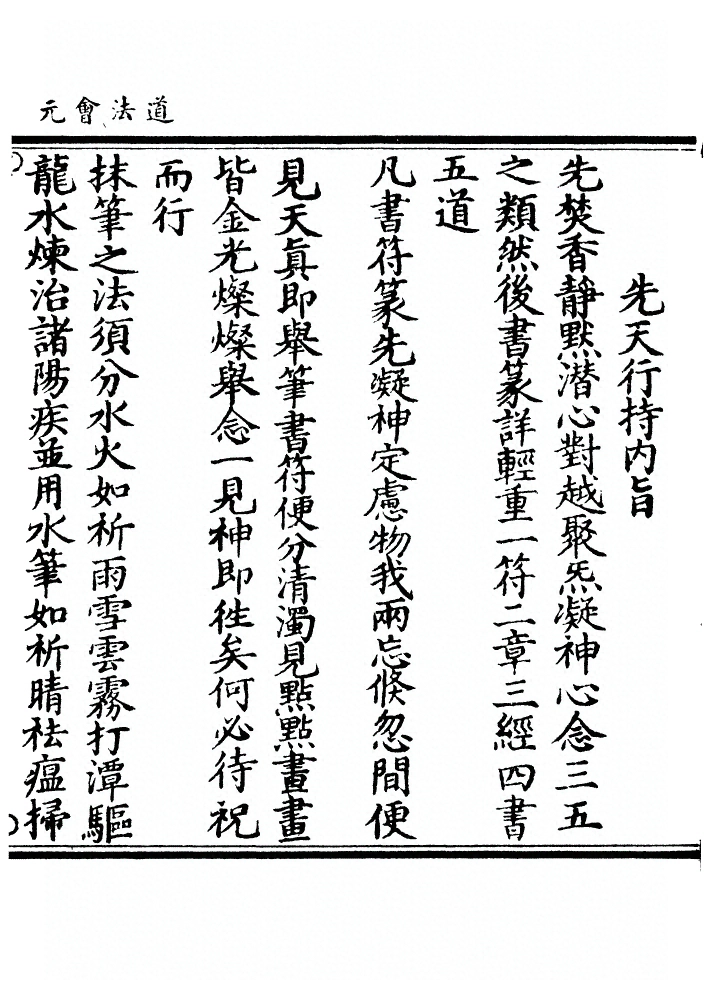 道法會元
先天行持內旨
先焚香靜默潜心對越聚炁凝神心念三五
之類然後書篆詳輕重一符二章三經四書
五道
凡書符篆先凝神定慮物我兩忘倏忽間便
見天眞即舉筆書符便分清濁見點點畫畫
皆金光燦燦舉念一見神即徃矣何必待祝
而行
抹筆之法須分水火如祈雨雪雲霧打潭驅
龍水煉治諸陽疾並用水筆如祈晴祛瘟掃